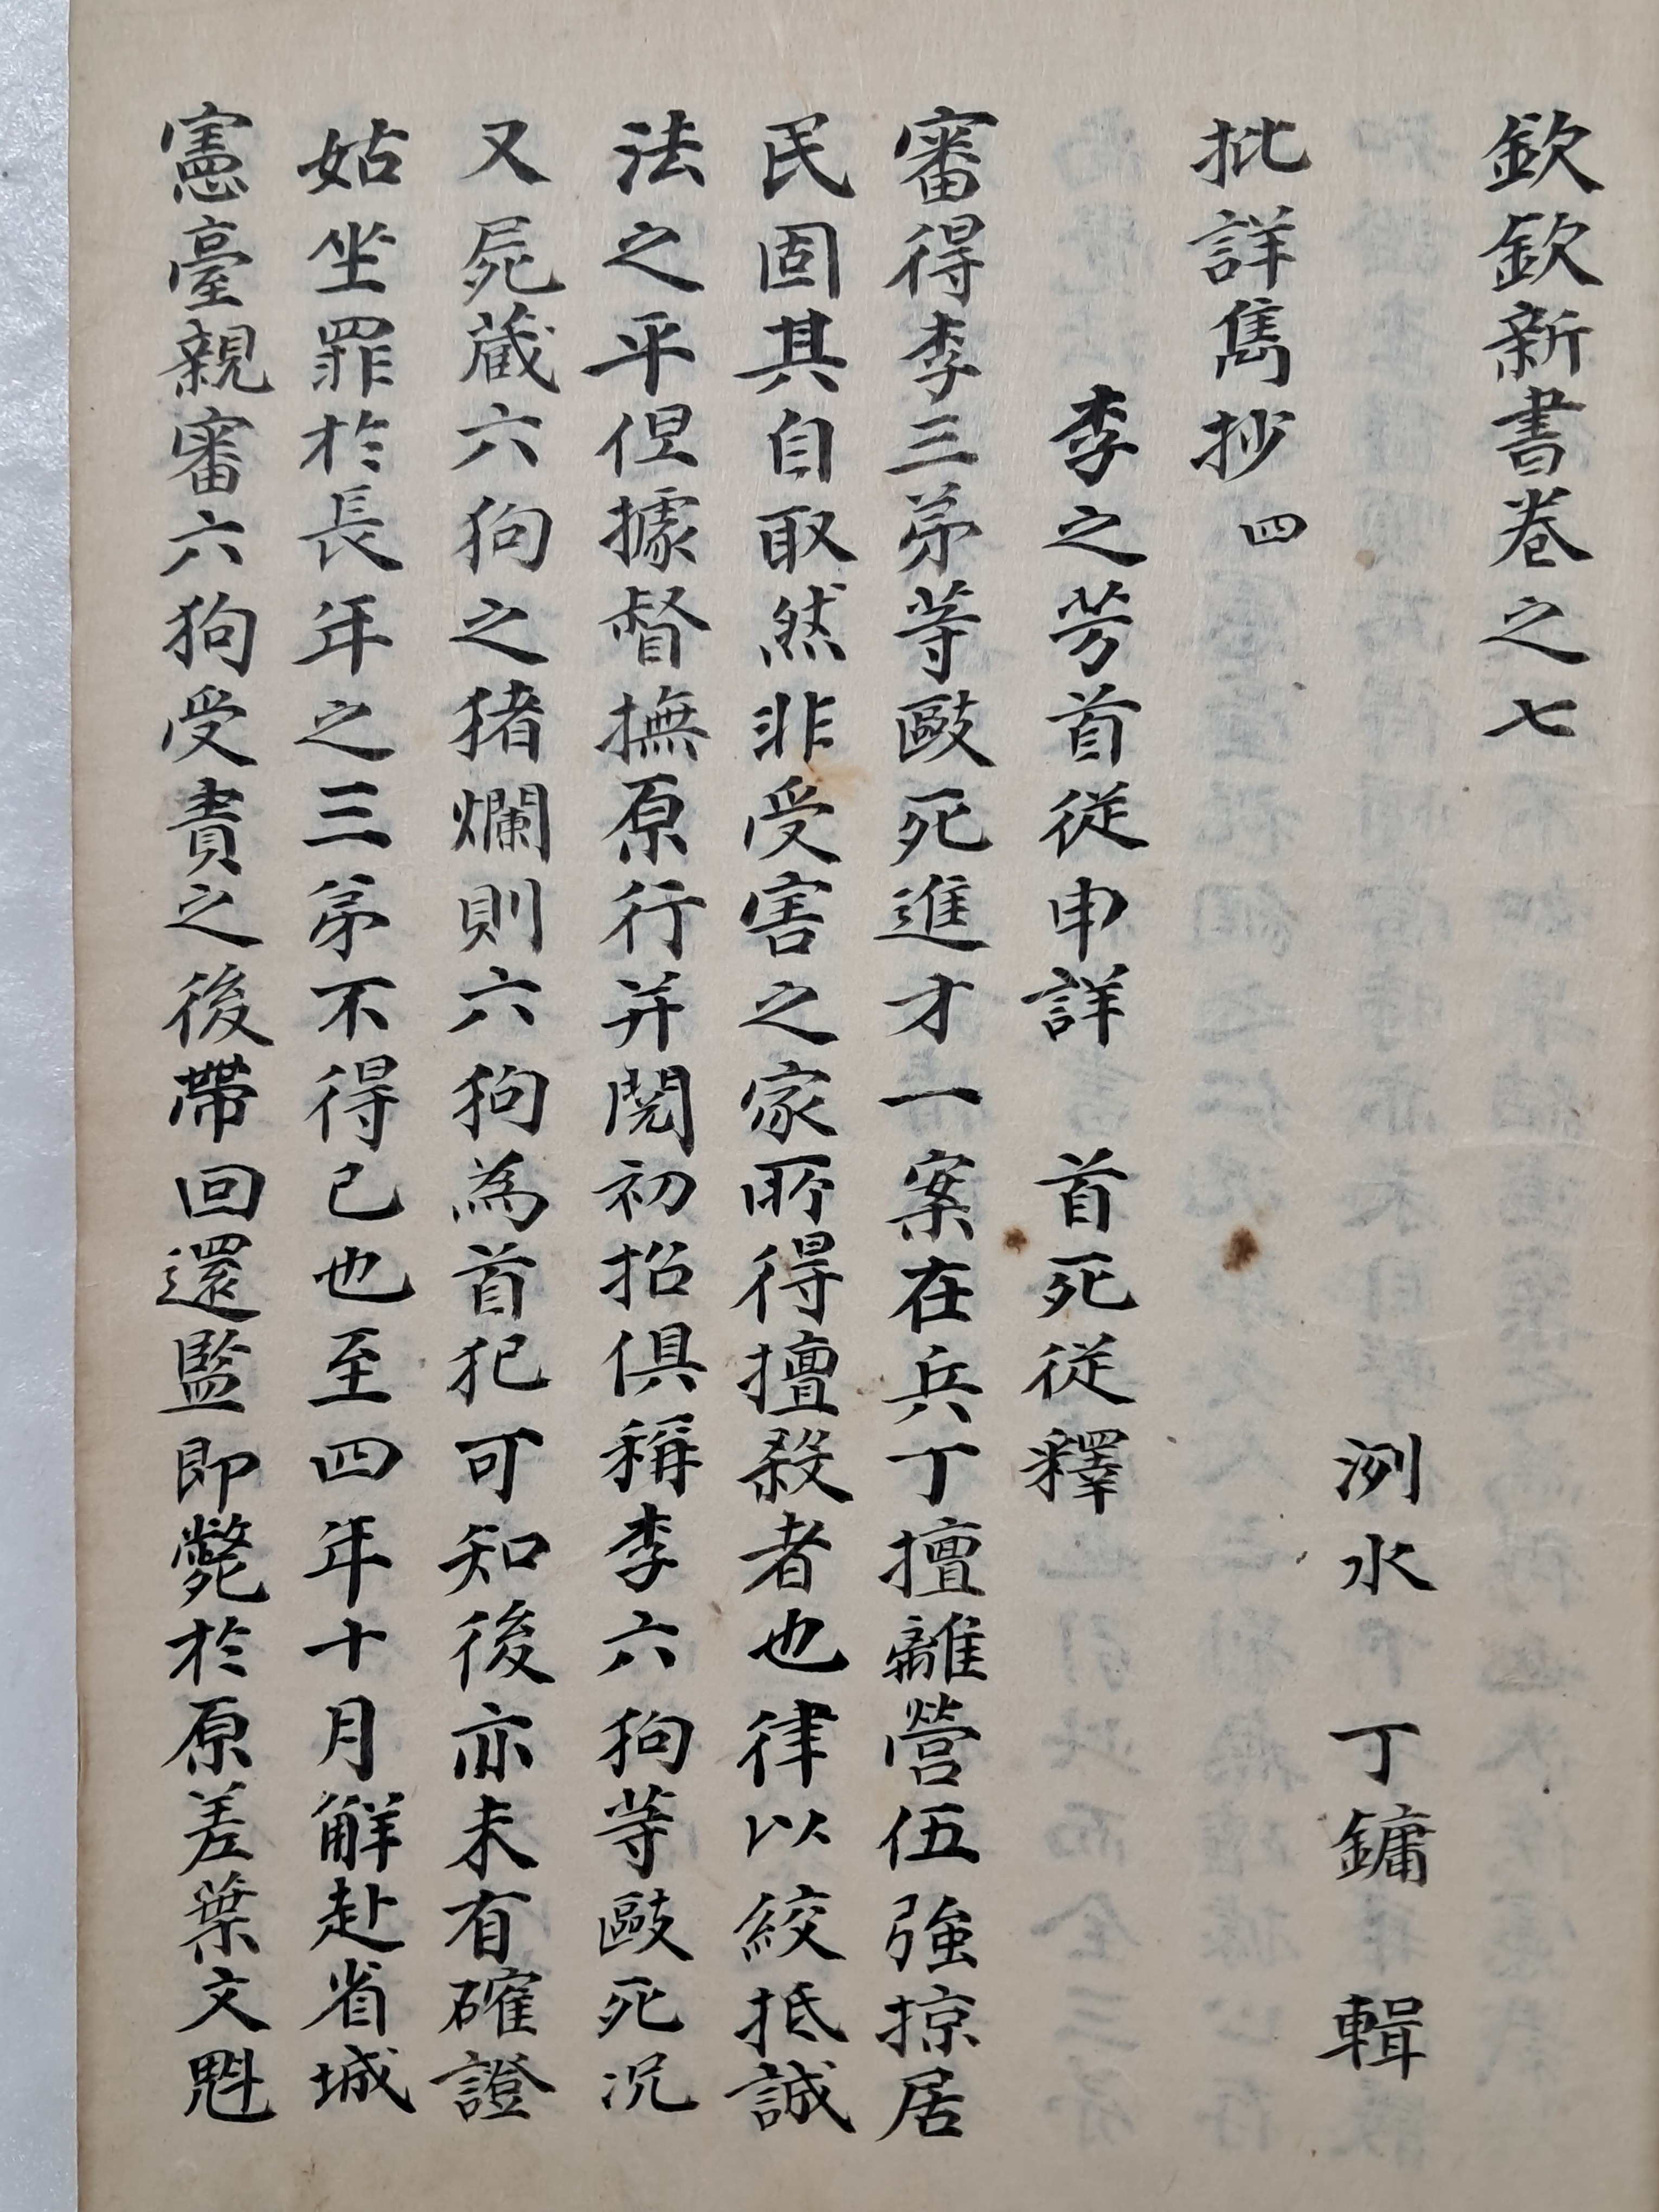 欽欽新書卷之七
洌水 丁鏞 輯
批詳雋抄 四
李之芳首從申詳 首死從釋
審得李三弟等毆死進才一案在兵丁擅離營伍強掠居
民固其自取然非受害之家所得擅殺者也律以絞抵誠
法之平但據督撫原行并閱初招俱稱李六狗等毆死況
又屍藏六狗之猪爛則六狗為首犯可知後亦未有確證
姑坐罪於長年之三弟不得已也至四年十月解赴省城
憲臺親審六狗受責之後帶回還監即斃於原差葉文魁